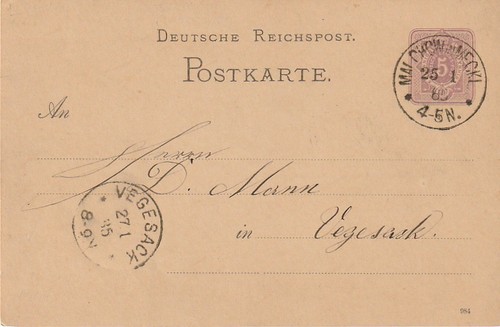 DEUTSCHE REICHSPOST.
POSTKARTE.
5
MALCHOW i. MECKL.
25 1
4-5N.
An
Herrn
D. Mann
in Vegesack.
VEGESACK
27 1
85
8-9V
984